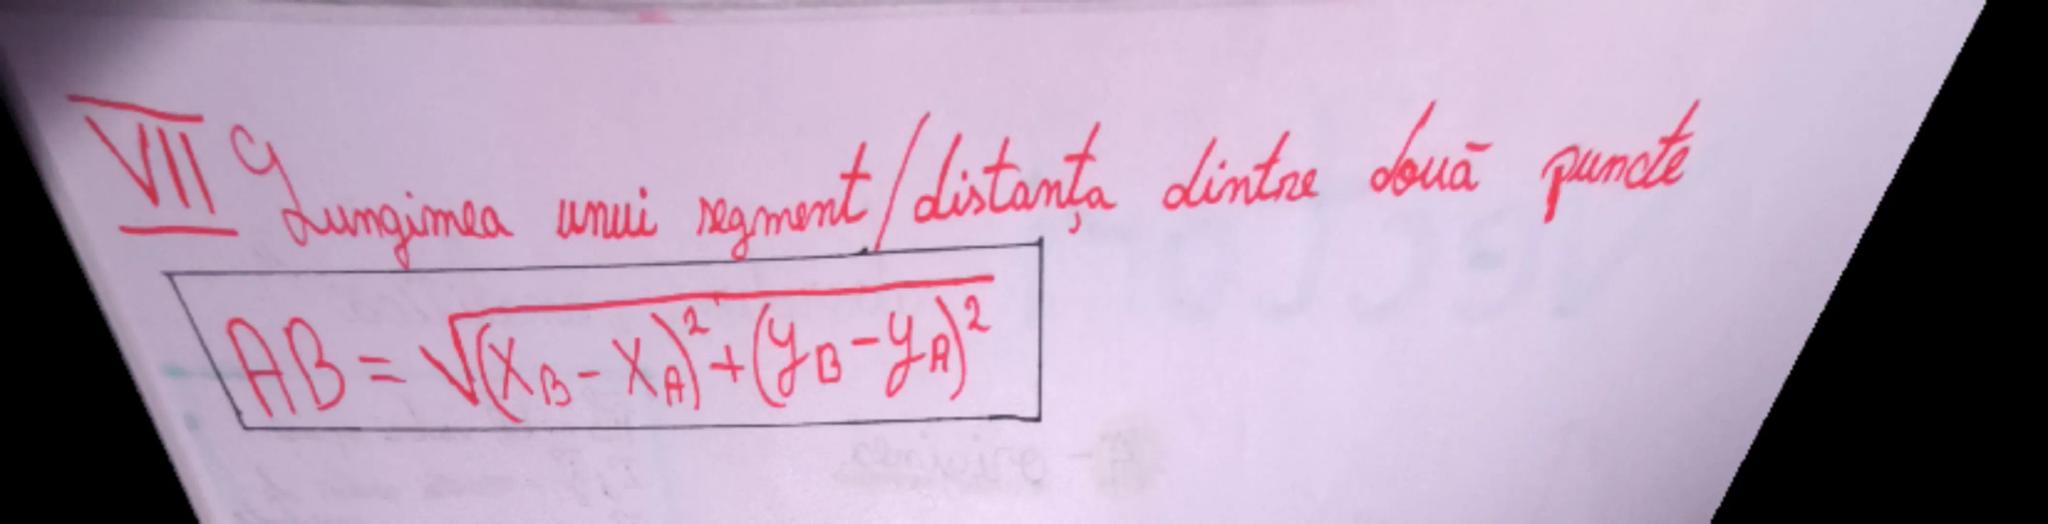 VII Lungimea unui segment/distanța dintre două puncte
AB = √(x_B - x_A)² + (y_B - y_A)²